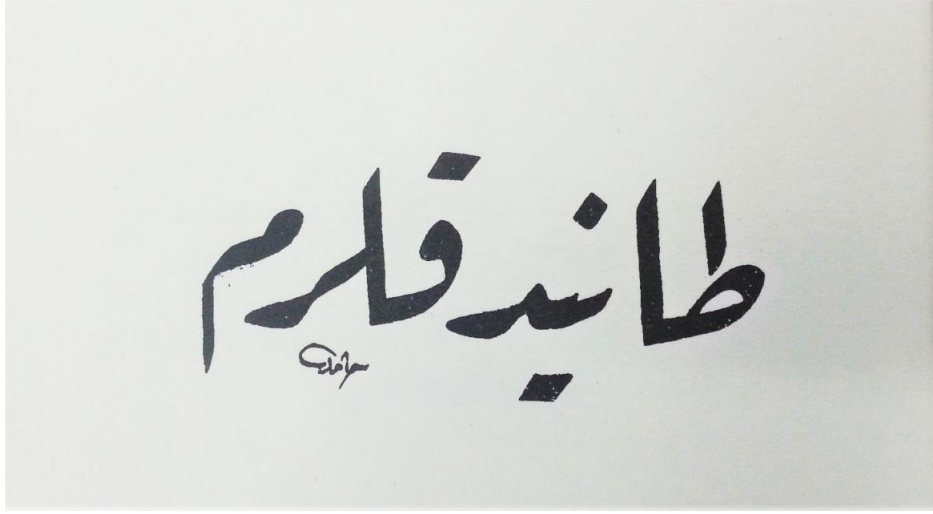 طانيدقلرم